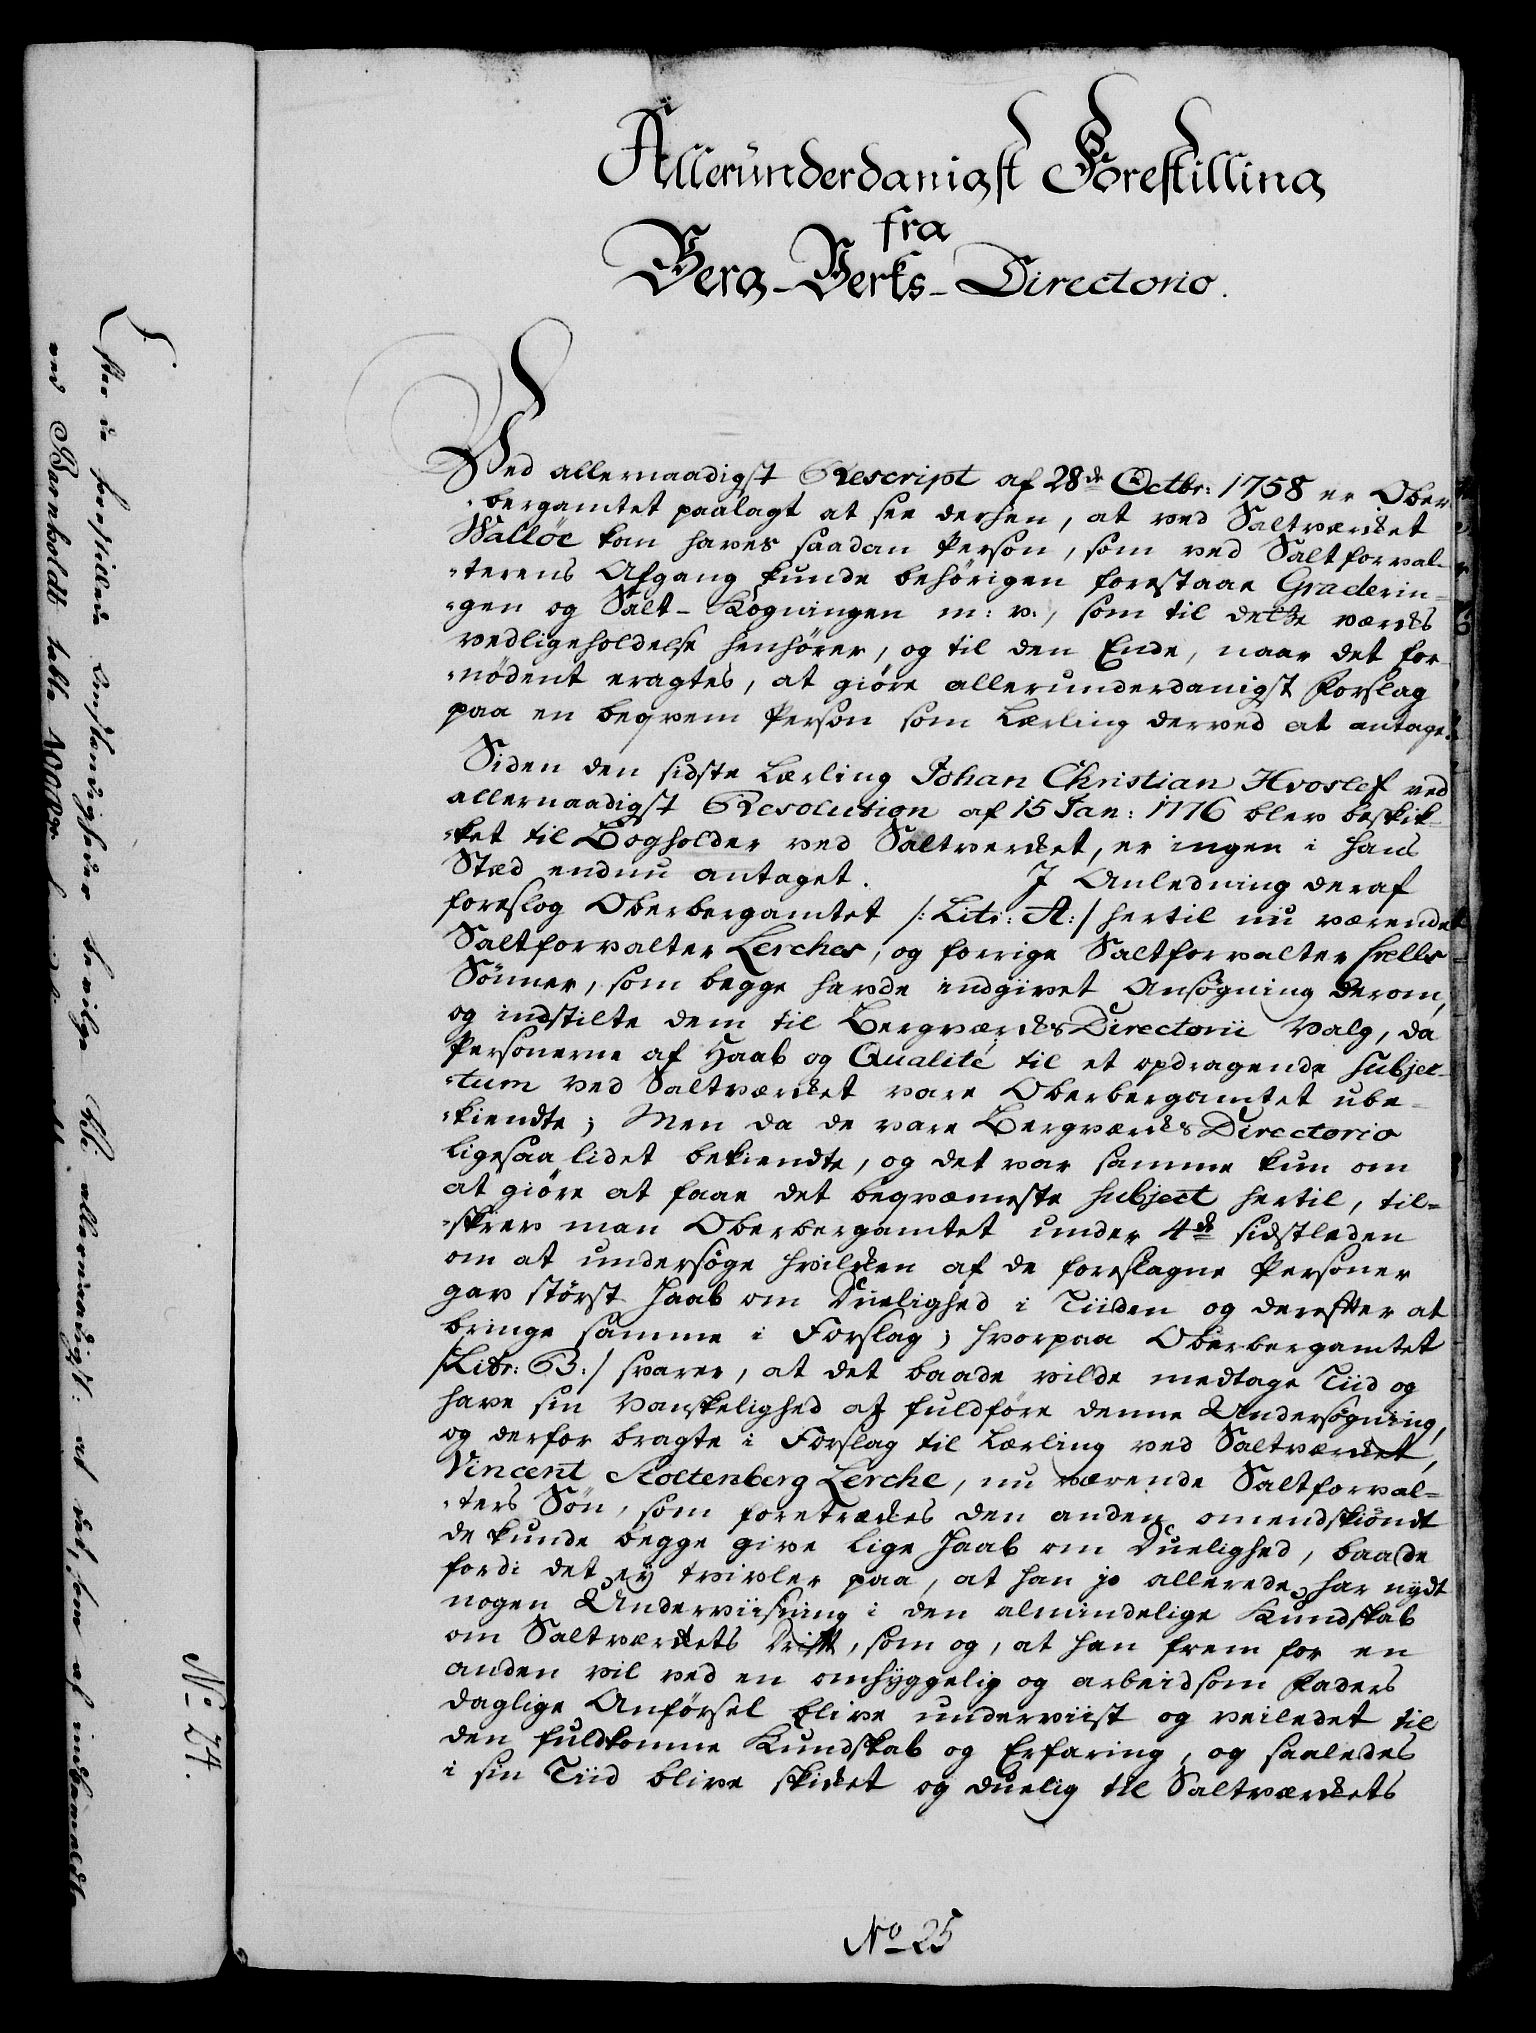 Alleründerdanigst Forestilling
fra
Berg-Verks-Directorio.
Ved allernaadigst Rescript af 28de Octbr: 1758 er Ober
bergamtet paalagt at see derhen, at ved Saltværket
Walløe kan haves saadan Person, som ved Saltforval-
terens Afgang kunde behörigen forestaae Graderin-
gen og Salt-Kogningen m: v., som til dette værks
vedligeholdelse henhörer, og til den Ende, naar det for
nödent eragtes, at giöre allerunderdanigst Forslag
paa en beqvem Person som Lærling derved at antage.
Siden den sidste Lærling Johan Christian Hvoslef ved
allernaadigst Resolution af 15 Jan: 1776 blev beskik-
ket til Bogholder ved Saltverket, er ingen i hans
Stæd endnu antaget. I Anledning deraf
foreslog Oberbergamtet /: Litr: A:/ hertil nu værende
Saltforvalter Lerches, og forrige Saltforvalter
Sönner, som begge havde indgivet Ansögning derom,
og indstilte dem til BergværksDirectorii Valg, da
Personerne af Haab og Qualité til et opdragende subjec-
tum ved Saltværket vare Oberbergamtet ube-
kiendte; Men da de vare BergværksDirectorio
ligesaa lidet bekiendte, og det var samme kun om
at giöre at faae det beqvæmeste subject hertil, til-
skrev man Oberbergamtet under 4de sidstleden
om at undersöge hvilken af de foreslagne Personer
gav störst Haab om Duelighed i Tiiden og derefter at
bringe samme i Forslag; hvorpaa Oberbergamtet
/: Litr: B:/ svarer, at det baade vilde medtage Tiid og
have sin Vanskelighed at fuldföre denne Undersögning,
og derfor bragte i Forslag til Lærling ved Saltværket,
Vincent Stoltenberg Lerche, nu værende Saltforval-
ters Sön, som foretrækes den anden omendskiöndt
de kunde begge give lige Haab om Duelighed, baade
fordi det ey tvivler paa, at han jo allerede har nydt
nogen Underviisning i den almindelige Kundskab
om Saltværkets Drift, som og, at han frem for en
anden vil ved en omhyggelig og arbeidsom Faders
daglige Anförsel blive underviist og veiledet til
den fuldkomne Kundskab og Erfaring, og saaledes
i sin Tiid blive skikket og duelig til Saltværkets
No 25
Efter de forestillede Omstændigheder bevilge Vi allernaadigst: at det, som af indbemeldte
ved Barnholdt
No 24.